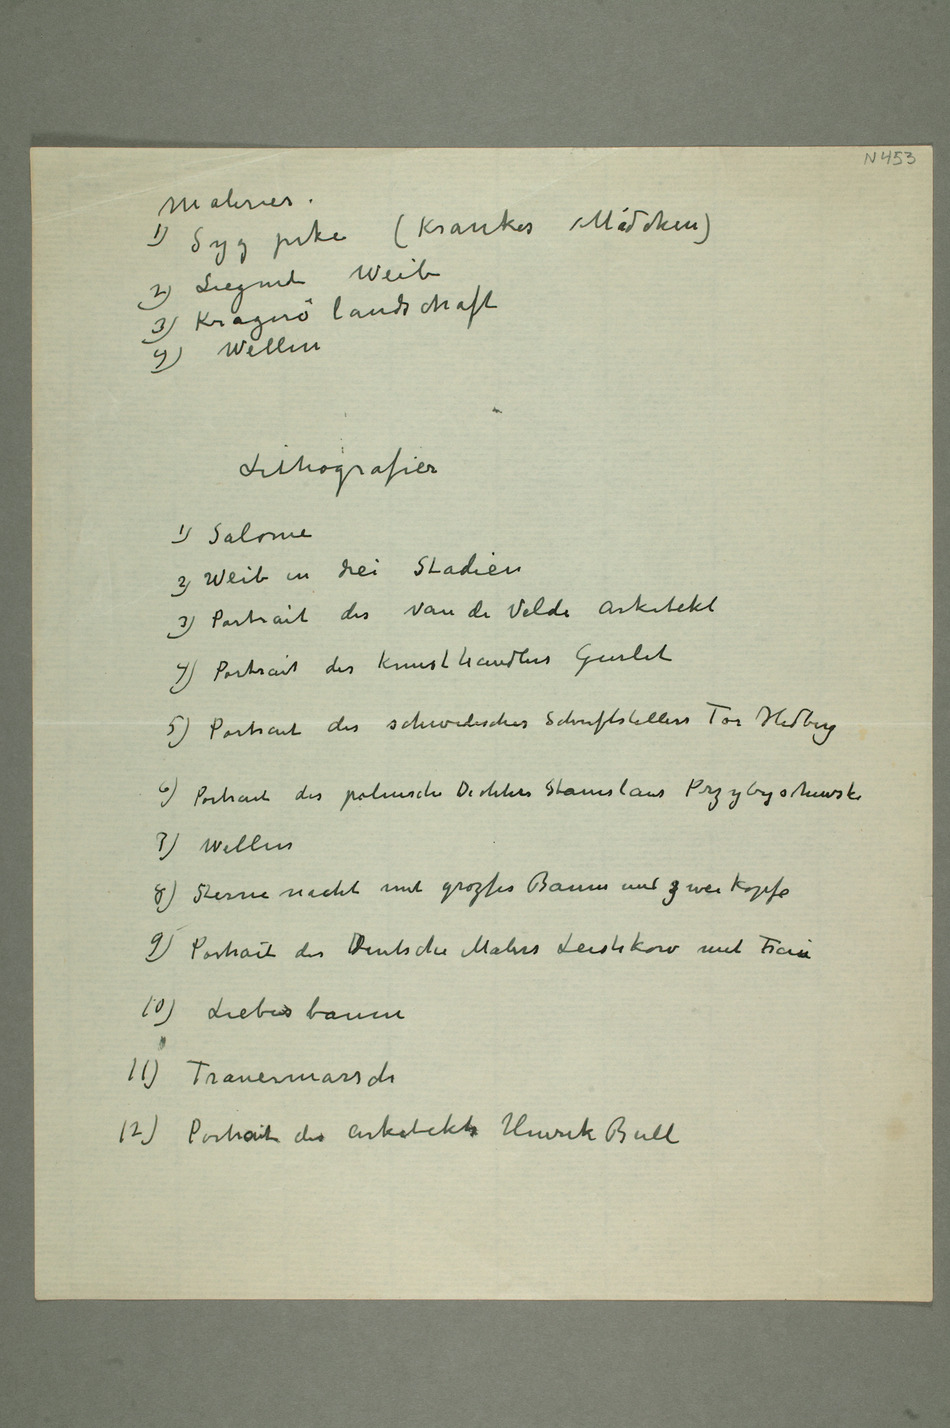 N 453
Malerier.
1) Syg pike (Krankes Mädchen)
2) Liegende Weib
3) Kragerö landschaft
4) Wellen
Lithografier
1) Salome
2) Weib in drei Stadien
3) Portrait des Van de Velde arkitekt
4) Portrait des Kunsthandlers Gurlit
5) Portrait des schwedisches Schriftstellers Tor Hedberg
6) Portrait des polnische Dichters Stanislaus Przybyschewski
7) Wellen
8) Sterne nacht mit grozses Baum und zwei Kopfe
9) Portrait des Deutsche Malers Leistikow mit Frau
10) Liebesbaum
11) Trauermarsch
12) Portrait des arkitekts Henrik Bull